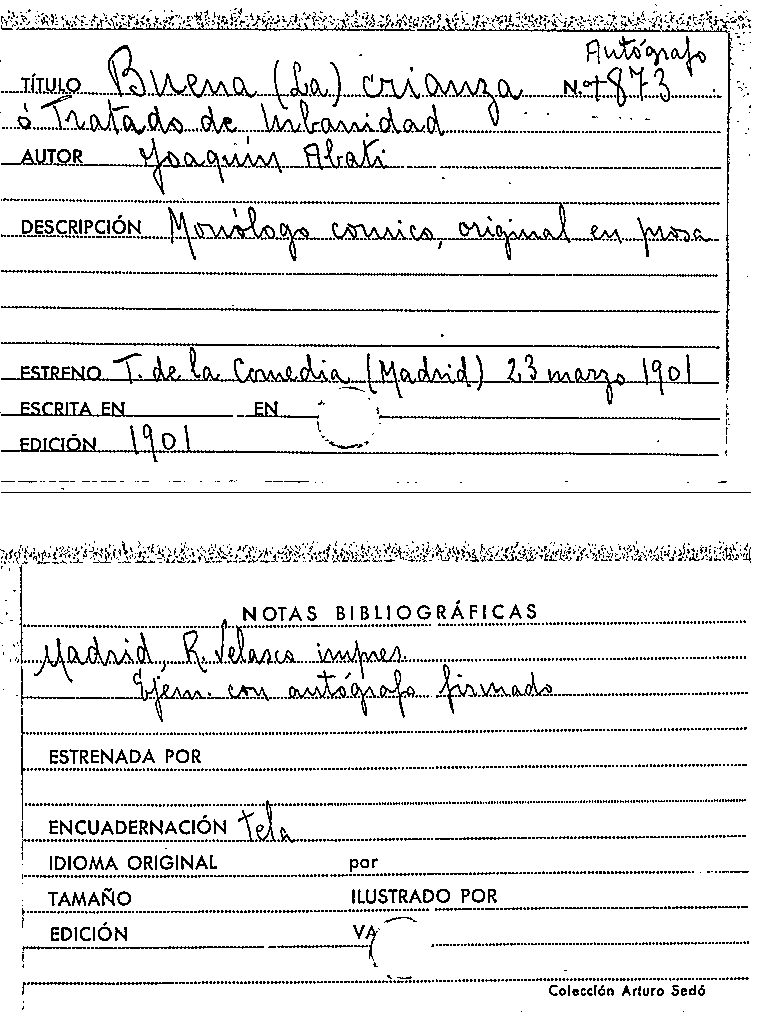 Autógrafo
TÍTULO Buena (La) crianza N.º 4873
ó Tratado de Urbanidad
AUTOR Joaquín Abati
DESCRIPCIÓN Monólogo comico, original en prosa
ESTRENO T. de la Comedia (Madrid) 23 marzo 1901
ESCRITA EN EN
EDICIÓN 1901
NOTAS BIBLIOGRÁFICAS
Madrid, R. Velasco impres.
Ejem. con autógrafo firmado
ESTRENADA POR
ENCUADERNACIÓN tela
IDIOMA ORIGINAL por
TAMAÑO ILUSTRADO POR
EDICIÓN VA
Colección Arturo Sedó